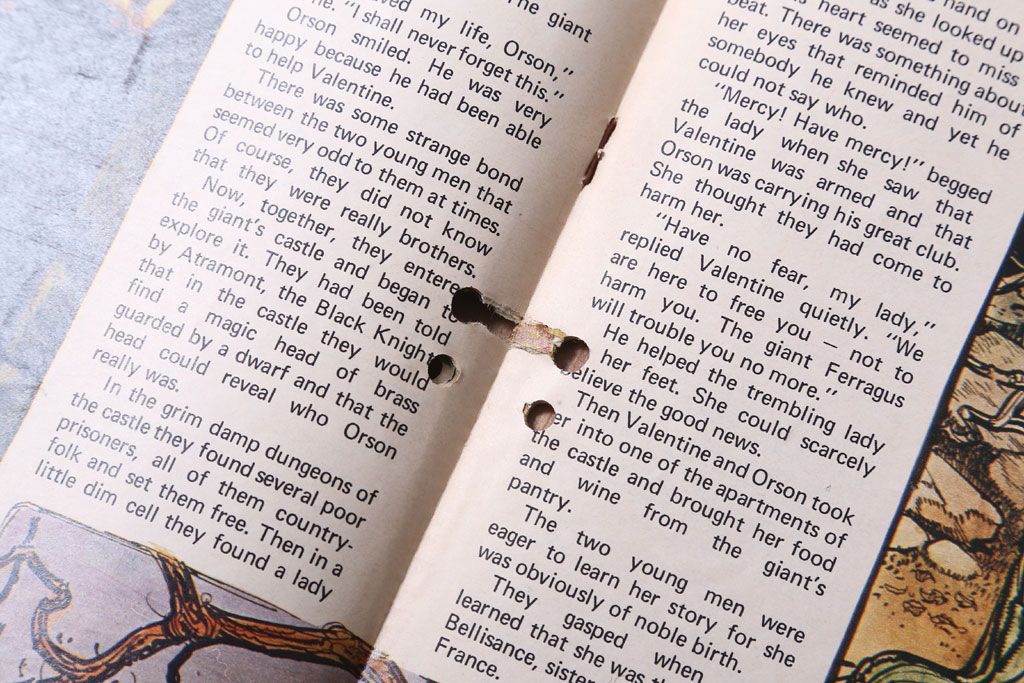 The giant
my life, Orson,"
"I shall never forget this."
Orson smiled. He was very
happy because he had been able
to help Valentine.
There was some strange bond
between the two young men that
seemed very odd to them at times.
Of course, they did not know
that they were really brothers.
Now, together, they entere
the giant's castle and began t
explore it. They had been told
by Atramont, the Black Knight
that in the castle they would
find a magic head of brass
guarded by a dwarf and that the
head could reveal who Orson
really was.
In the grim damp dungeons of
the castle they found several poor
prisoners, all of them country-
folk and set them free. Then in a
little dim cell they found a lady
hand on
as she looked up
heart seemed to miss
beat. There was something about
her eyes that reminded him of
somebody he knew and yet he
could not say who.
"Mercy! Have mercy!" begged
the lady when she saw that
Valentine was armed and that
Orson was carrying his great club.
She thought they had come to
harm her.
"Have no fear, my lady,"
replied Valentine quietly. "We
are here to free you — not to
harm you. The giant Ferragus
will trouble you no more."
He helped the trembling lady
her feet. She could scarcely
believe the good news.
Then Valentine and Orson took
er into one of the apartments of
the castle and brought her food
and wine from the giant's
pantry.
The two young men were
eager to learn her story for she
was obviously of noble birth.
They gasped when
learned that she was
Bellisance, sister
France.